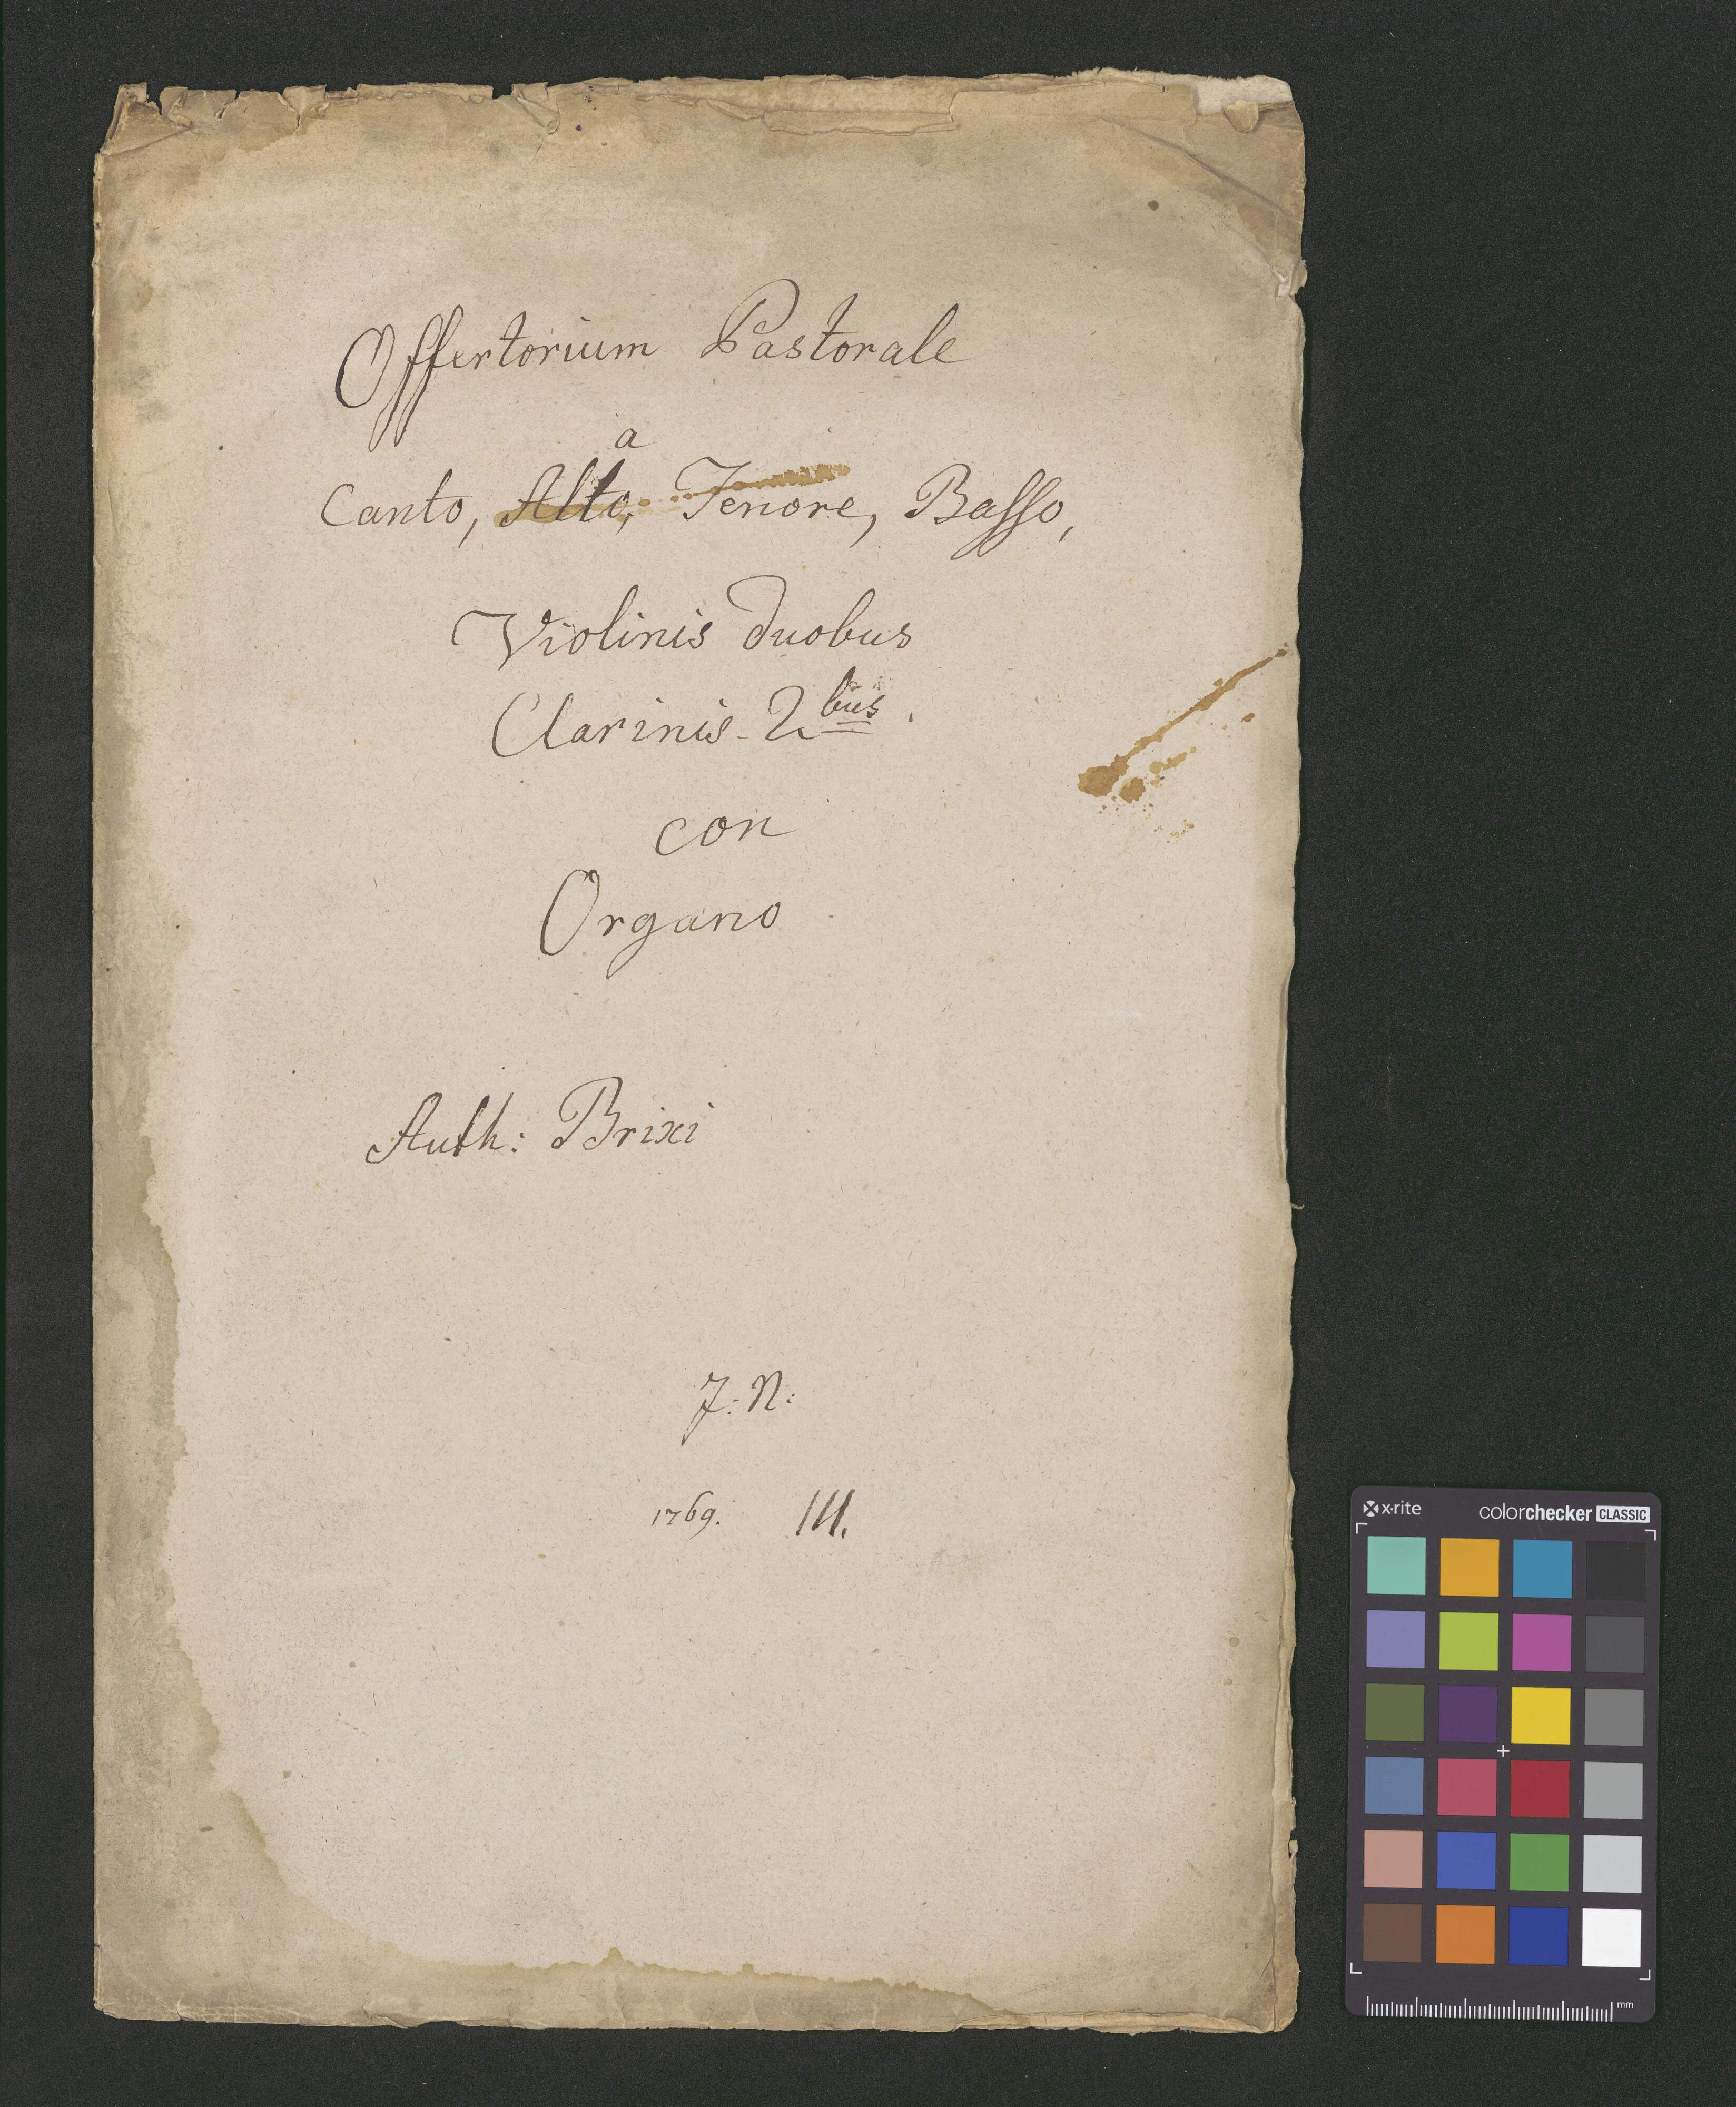 Offertorium Pastorale
a
Canto, Alto, Tenore, Basso,
Violinis duobus
Clarinis 2bus.
con
Organo
Auth: Brixi
J: N:
1769. III.
x-rite colorchecker CLASSIC
mm